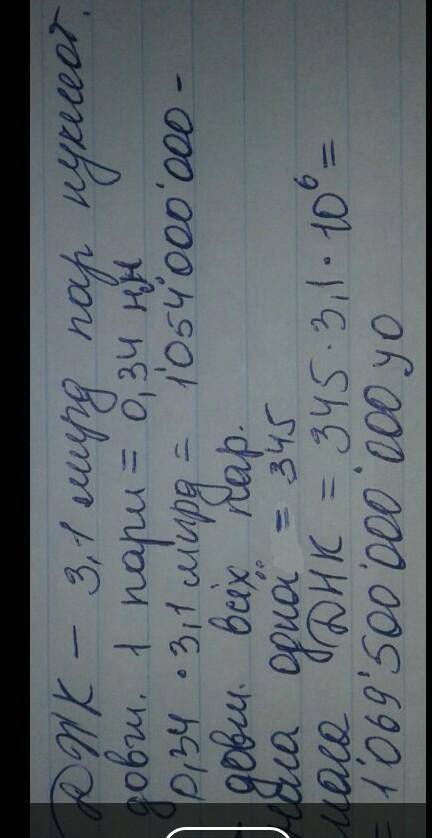 ДНК – 3,1 млрд пар нуклеот.
довж. 1 пари = 0,34 нн
0,34 · 3,1 млрд = 1'054'000'000 –
довж. всіх пар.
маса одної = 345
маса ДНК = 345 · 3,1 · 10⁶ =
= 1'069'500'000'000 уо